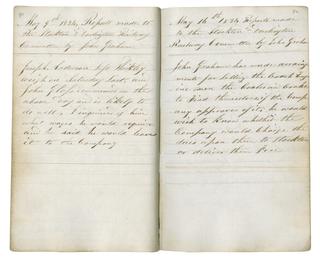 May 9th 1834 Report made to
the Stockton & Darlington Railway
Committee by John Graham
Joseph Anderson left the
weigh on Saturday last and
John Glass commenced on the
above day and is likely to
do well, I enquired of him
what wages he would require
and he said he would leave
it to the Company
May 16th 1834 Report made
to the Stockton & Darlington
Railway Committee by John Graham
John Graham has made
made for letting the Coach
the Coaleson Coaches
to find themselves if the Comp
any approves of it, he would
wish to know whether the
Company would Charge the
dues upon them to Stockton
or deliver them Free